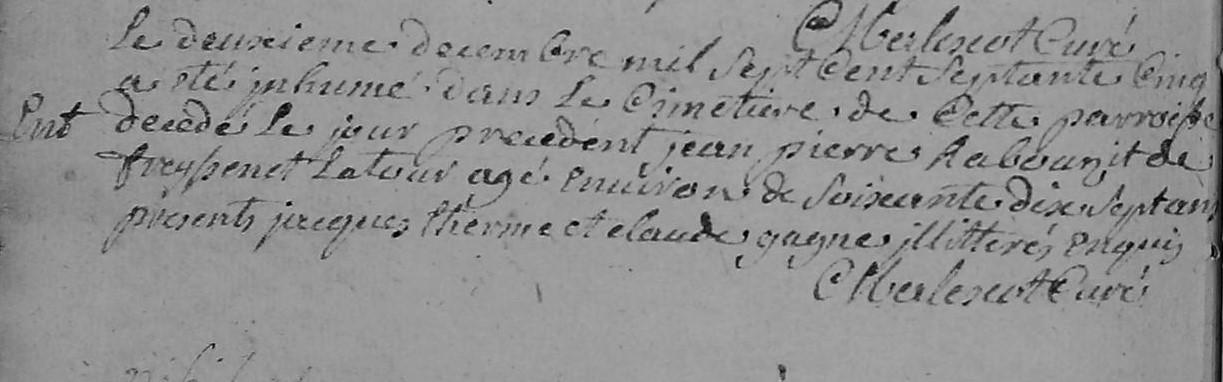 CMerlescot Curé
Le deuxieme decembre mil sept Cent septante Cinq
a été jnhumé dans Le Cimetiere de Cette parroisse
Ent decedé Le jour precedent jean pierre Rabouzit de
freyssenet Latour agé Environ de soixante dix sept ans
presents jacques therme et claude gagne jllitterés Enquis
CMerlescot Curé